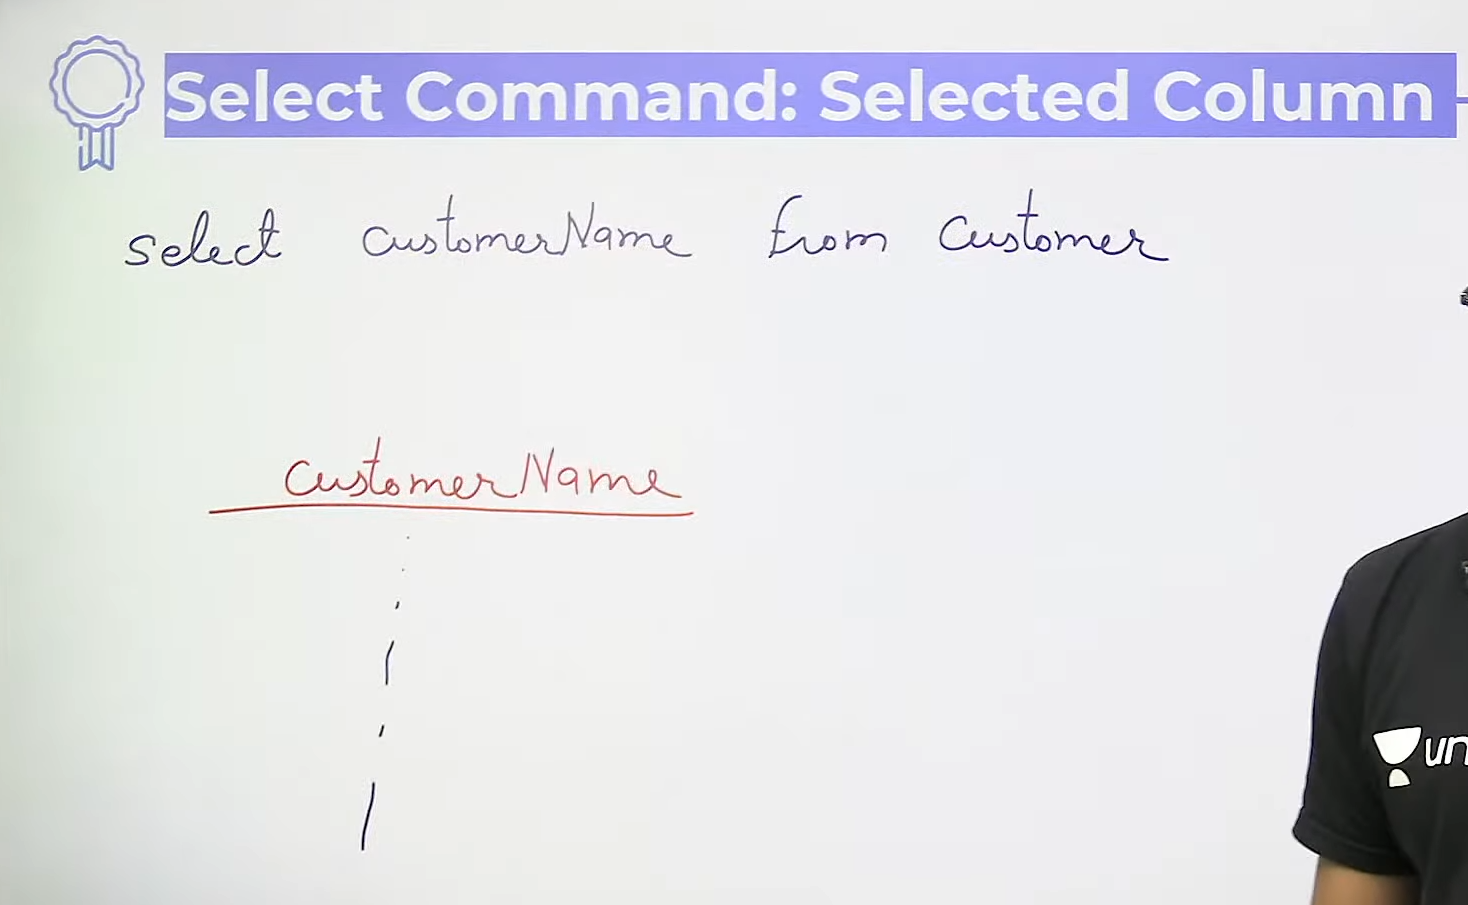 Select Command: Selected Column
select customerName from Customer
CustomerName
un